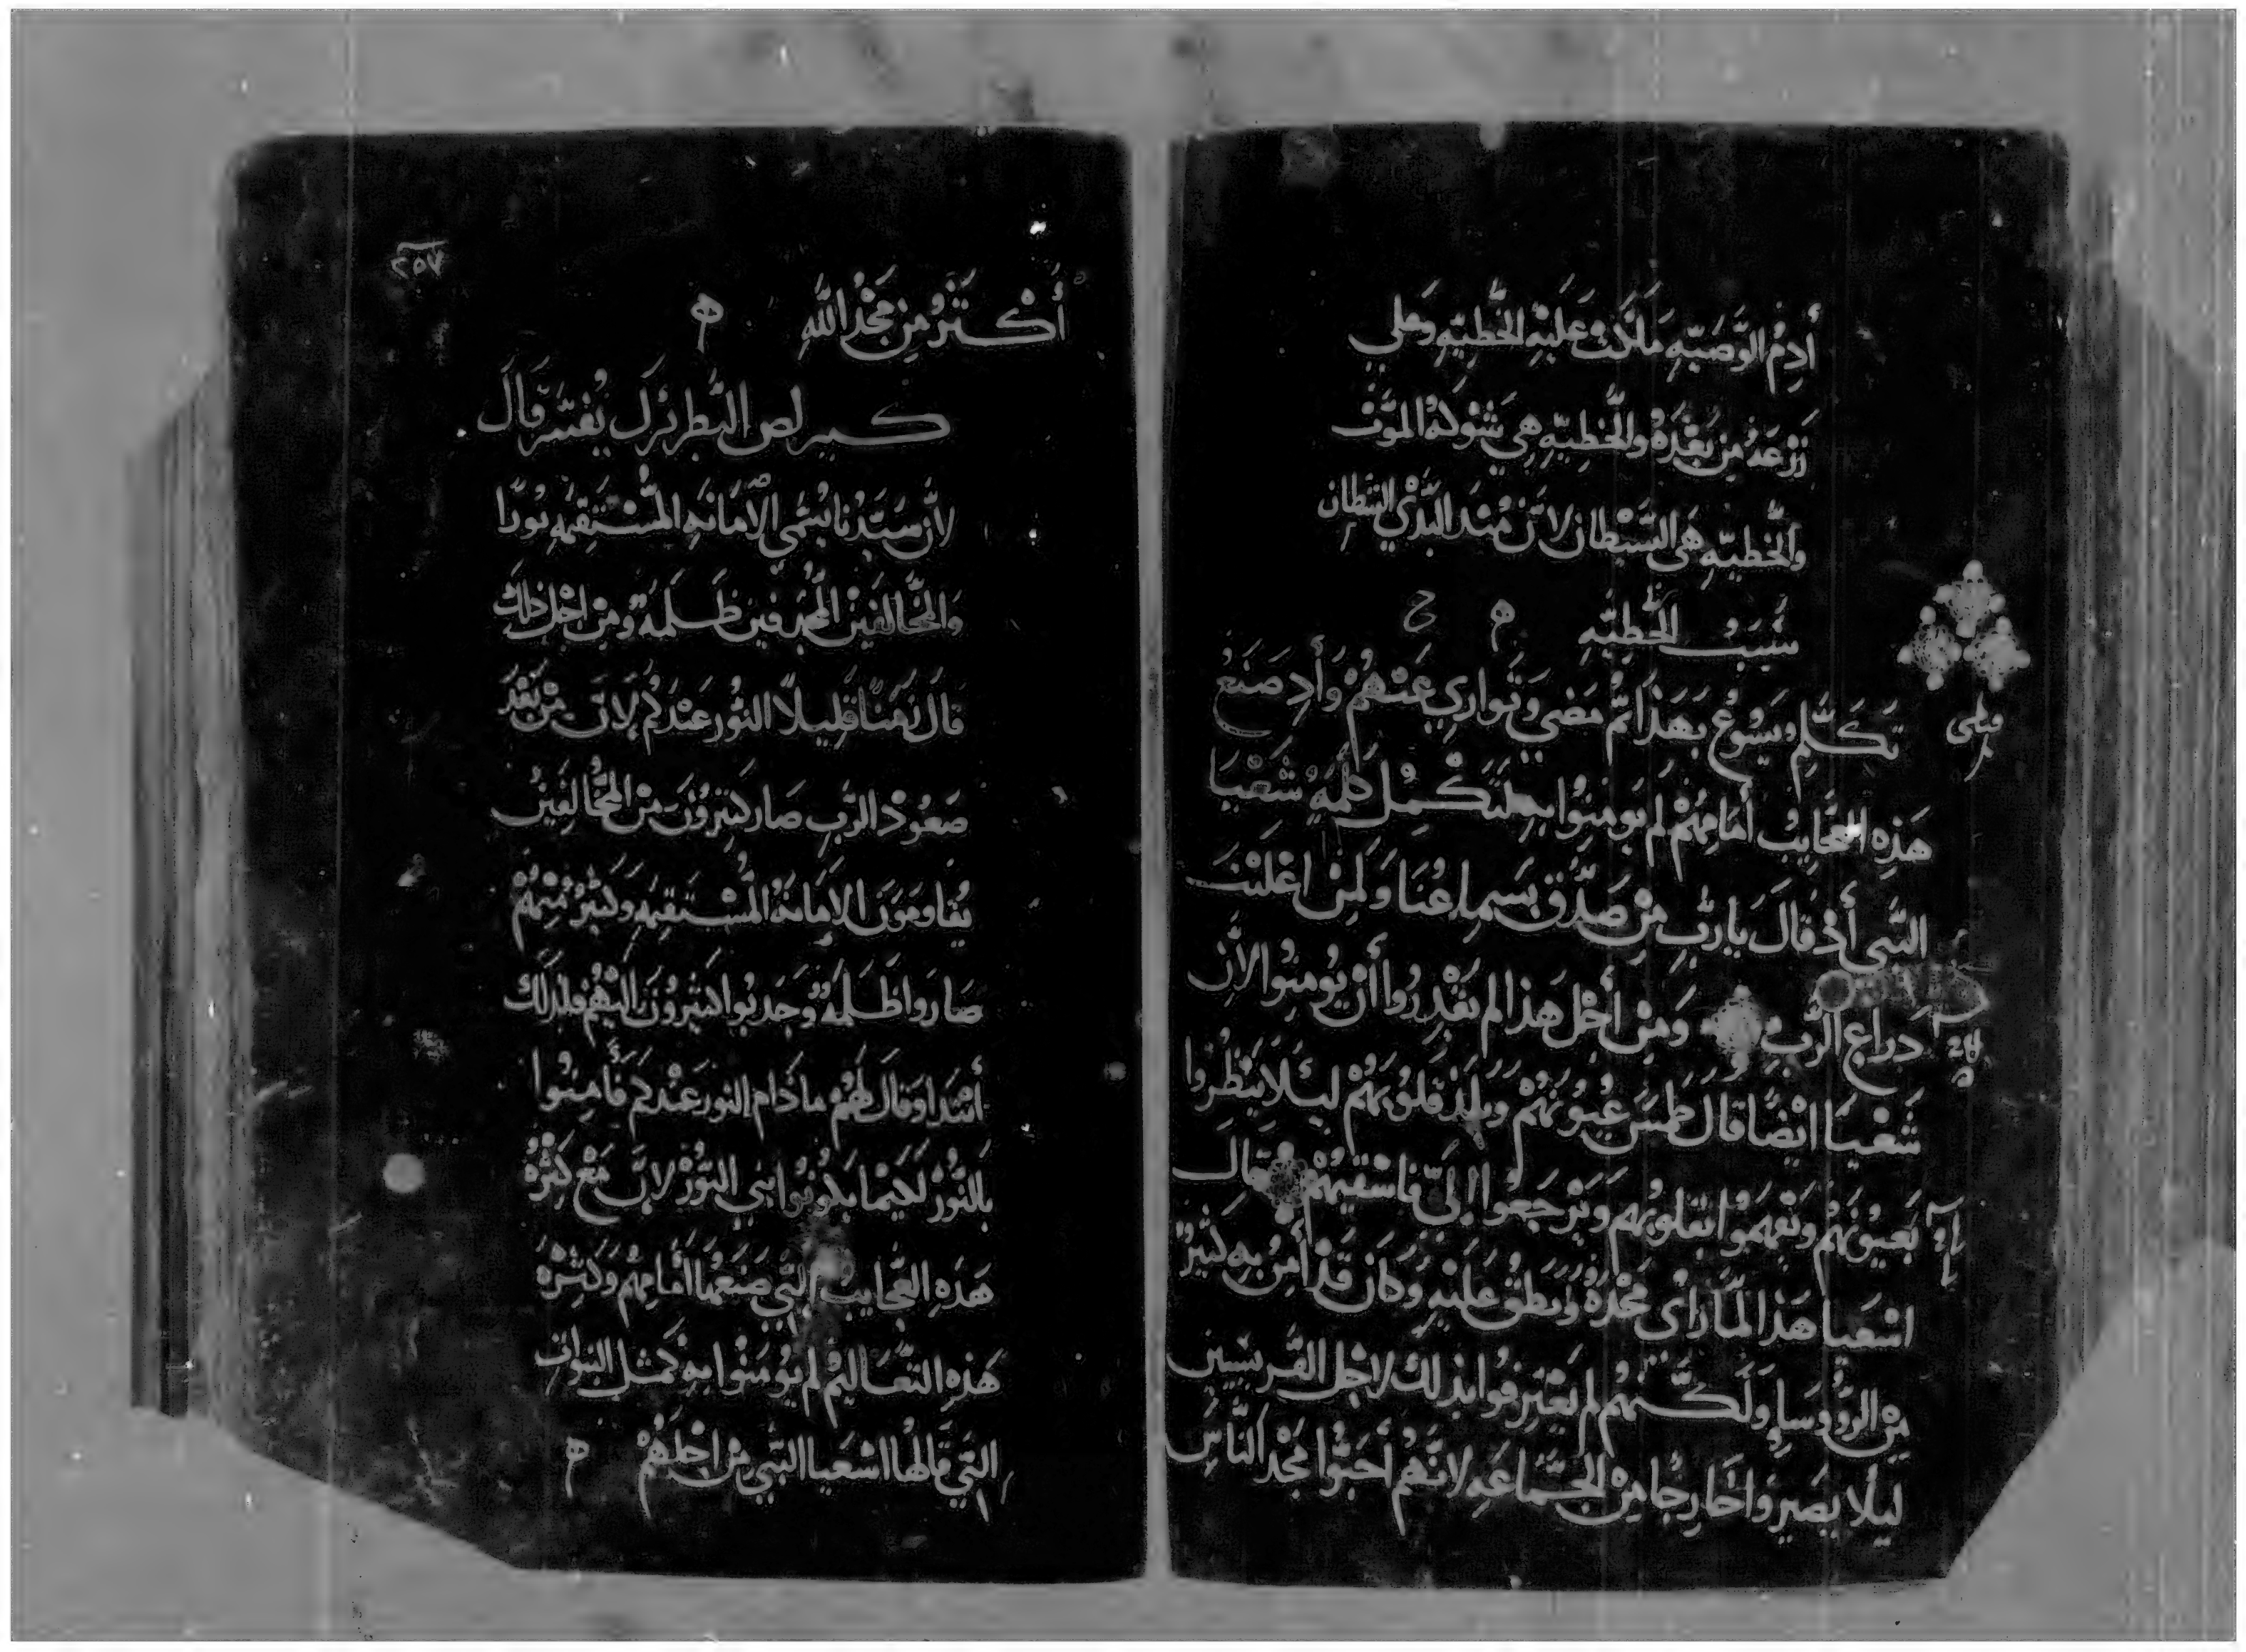 أدم الوصيه ملكت عليه الخطيه وعلي
زرعه من بعده والخطيه هي شوكة الموت
والخطيه هي الشيطان لان منذ البدي الشطان
سبب الخطيه ه ح
تكلم يسوع بهذا ثم مضي وتواري عنهم وأد صنع
قبطى
هذه العجايب أمامهم لم يومنوا به لتكمل كلمة شعيا
النبي أذ قال يارب من صدق بسماعنا ولمن اعلنت
دراع الرب ومن أجل هذا لم يقدروا أن يومنوا لان
شعيا ايضا قال طمس عيونهم وبلد قلوبهم ليلا ينظروا
بعيونهم ويفهموا بقلوبهم ويرجعوا الي فاشفيهم قال
اشعيا هذا لما راى مجده ونطق عليه وكان قد أمن به كثير
من الروسا ولكنهم لم يعترفوا بذلك لاجل الفريسيين
ليلا يصيروا خارجا من الجماعه لانهم أحبوا مجد الناس
٢٥٧
أكتر من مجد الله ه
كيرلص البطريرك يفسر قال
لان سيدنا يسمي الامانه المستقيمه نورا
والمخالفين المجدفين ظلمة ومن اجل ذلك
قال زمنا قليلا النور عندكم لان من بعد
صعود الرب صار كتيرون من المخالفين
يقاومون الامانة المستقيمه وكتير منهم
صاروا ظلمة وجدبوا كتيرون اليهم فلدلك
أبتدا وقال لهم مادام النور عندكم فأمنوا
بالنور لكيما يكونوا بني النور لان مع كثرة
هذه العجايب التي صنعها أمامهم وكثرة
هذه التعاليم لم يومنوا به كمثل النبوات
التي قالها اشعيا النبي من اجلهم ه